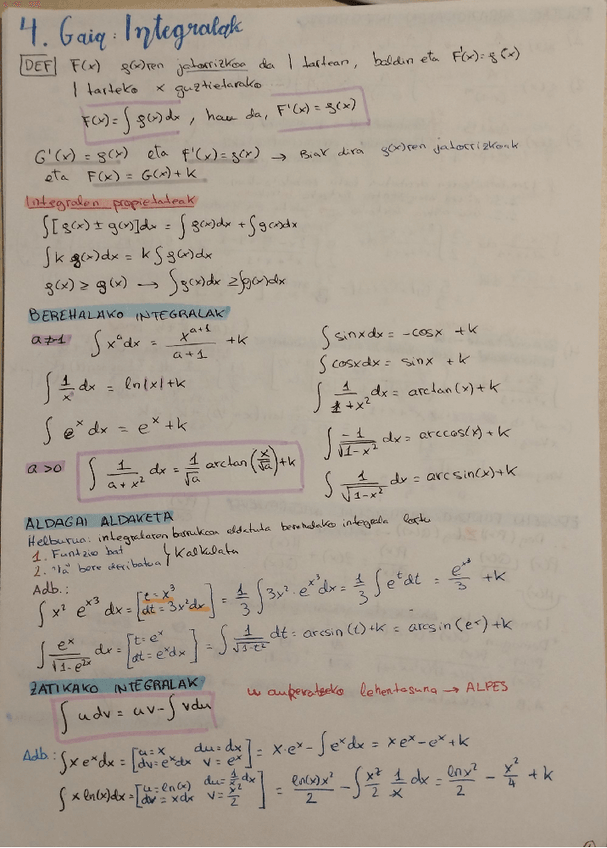 4. Gaia: Integralak
DEF F(x) f(x)ren jatorrizkoa da I tartean, baldin eta F'(x)=f(x)
I tarteko x guztietarako
F(x)=∫f(x)dx, hau da, F'(x)=f(x)
G'(x)=f(x) eta F'(x)=f(x) → Biak dira f(x)ren jatorrizkoak
eta F(x)=G(x)+k
Integralen propietateak
∫[f(x)±g(x)]dx = ∫f(x)dx ± ∫g(x)dx
∫k f(x)dx = k∫f(x)dx
f(x) ≥ g(x) → ∫f(x)dx ≥ ∫g(x)dx
BEREHALAKO INTEGRALAK
a≠-1 ∫x^a dx = x^(a+1)/(a+1) +k
∫1/x dx = ln|x|+k
∫e^x dx = e^x+k
a>0 ∫1/(a+x²) dx = 1/√a arctan(x/√a)+k
∫sinxdx = -cosx +k
∫cosxdx = sinx +k
∫1/(1+x²) dx = arctan(x)+k
∫-1/√(1-x²) dx = arccos(x)+k
∫1/√(1-x²) dx = arcsin(x)+k
ALDAGAI ALDAKETA
Helburua: integralaren barrukoa aldatuta berehalako integrala lortu
1. Funtzio bat
2. "Ia" bere deribatua } Kalkulatu
Adb.:
∫x² e^(x³) dx = [t=x³ dt=3x²dx] = 1/3 ∫3x²·e^(x³) dx = 1/3 ∫e^t dt = e^(x³)/3 +k
∫e^x/√(1-e^(2x)) dx = [t=e^x dt=e^x dx] = ∫1/√(1-t²) dt = arcsin(t)+k = arcsin(e^x)+k
ZATIKAKO INTEGRALAK
u aukeratzeko lehentasuna → ALPES
∫udv = uv-∫vdu
Adb.: ∫xe^x dx = [u=x du=dx dv=e^x dx v=e^x] = x·e^x-∫e^x dx = xe^x-e^x+k
∫x ln(x)dx = [u=ln(x) du=1/x dx dv=xdx v=x²/2] = ln(x)x²/2 - ∫x²/2 1/x dx = lnx²/2 - x²/4 +k